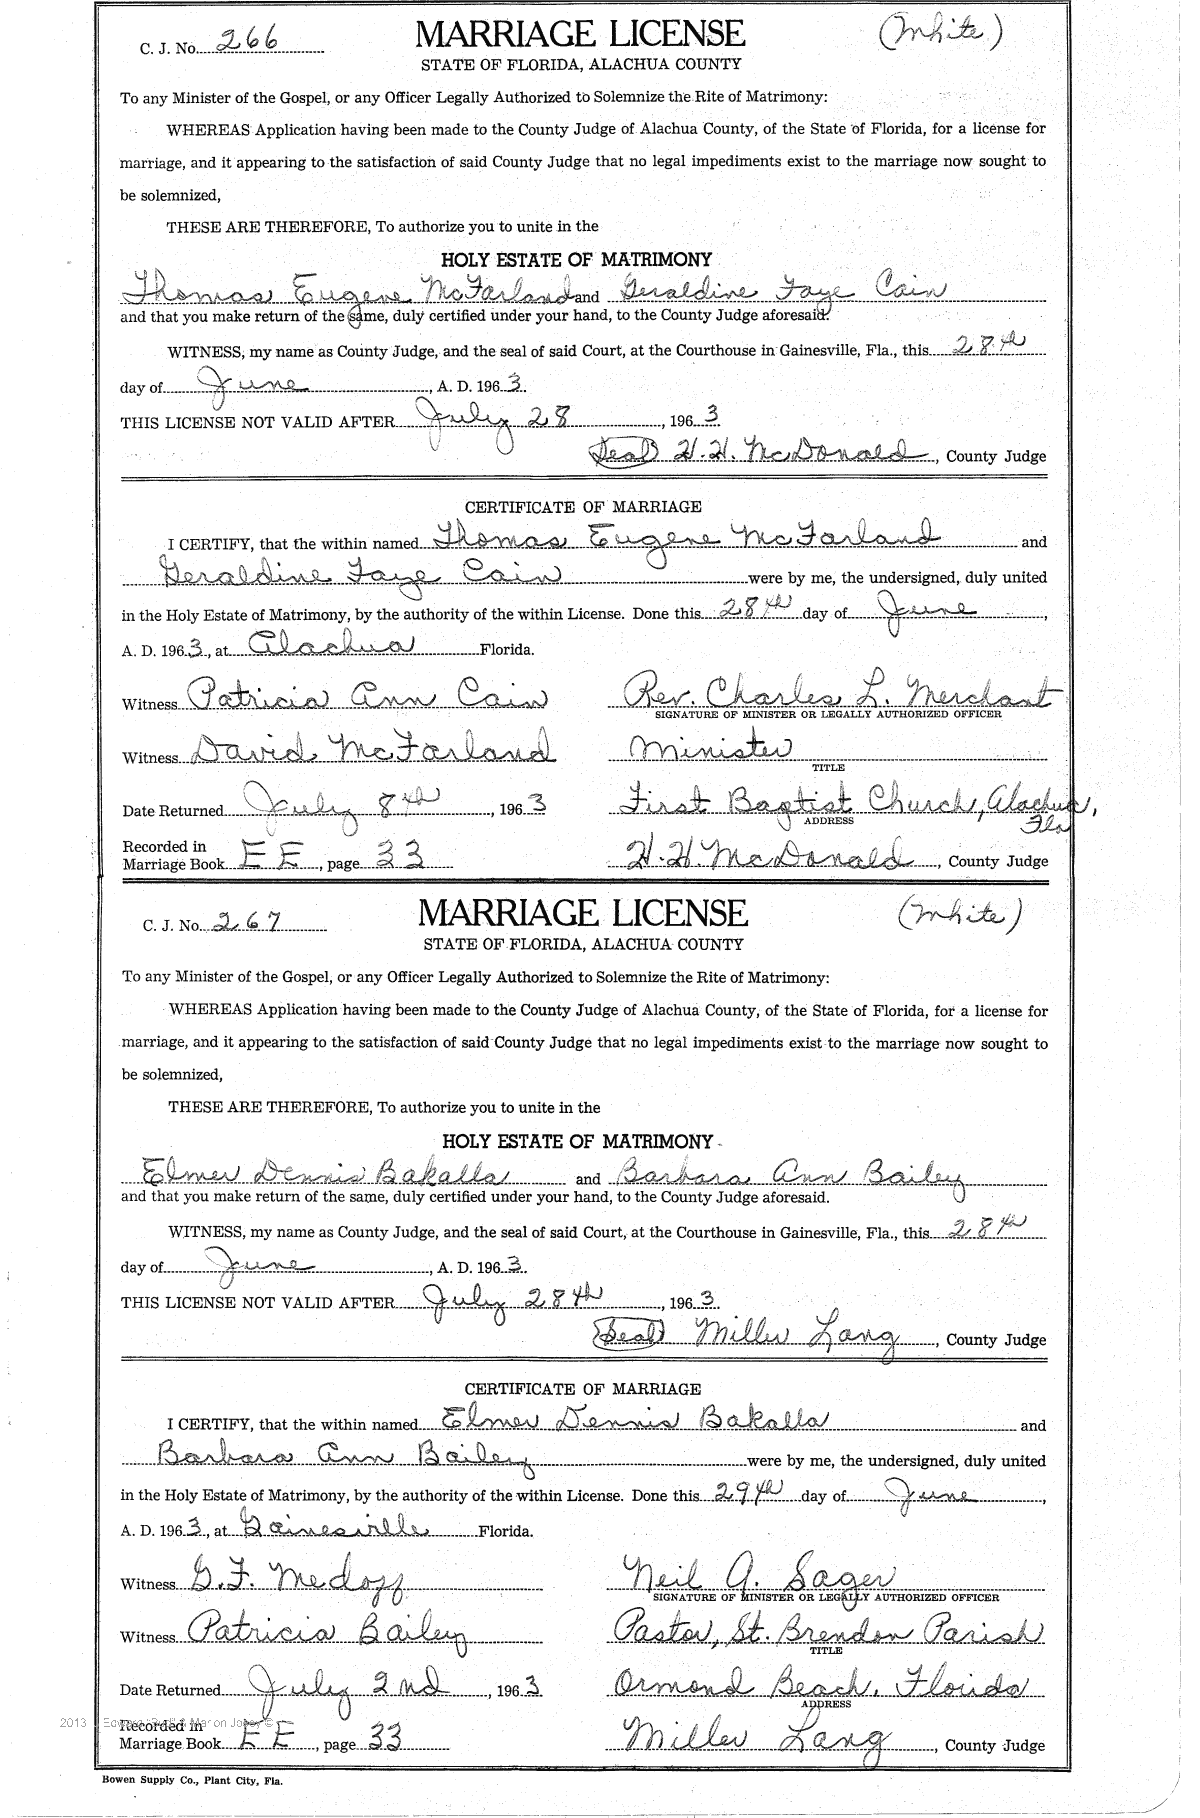 C. J. No. 266 MARRIAGE LICENSE (White)
STATE OF FLORIDA, ALACHUA COUNTY
To any Minister of the Gospel, or any Officer Legally Authorized to Solemnize the Rite of Matrimony:
WHEREAS Application having been made to the County Judge of Alachua County, of the State of Florida, for a license for
marriage, and it appearing to the satisfaction of said County Judge that no legal impediments exist to the marriage now sought to
be solemnized,
THESE ARE THEREFORE, To authorize you to unite in the
HOLY ESTATE OF MATRIMONY
Thomas Eugene McFarland and Geraldine Faye Cain
and that you make return of the same, duly certified under your hand, to the County Judge aforesaid.
WITNESS, my name as County Judge, and the seal of said Court, at the Courthouse in Gainesville, Fla., this 28th
day of June, A. D. 1963.
THIS LICENSE NOT VALID AFTER July 28, 1963.
(Seal) H. H. McDonald, County Judge
CERTIFICATE OF MARRIAGE
I CERTIFY, that the within named Thomas Eugene McFarland and
Geraldine Faye Cain were by me, the undersigned, duly united
in the Holy Estate of Matrimony, by the authority of the within License. Done this 28th day of June,
A. D. 1963, at Alachua Florida.
Witness Patricia Ann Cain Rev. Charles L. Merchant
SIGNATURE OF MINISTER OR LEGALLY AUTHORIZED OFFICER
Witness David McFarland Minister
TITLE
Date Returned July 8th, 1963 First Baptist Church, Alachua, Fla
ADDRESS
Recorded in
Marriage Book EE, page 33 H. H. McDonald, County Judge
C. J. No. 267 MARRIAGE LICENSE (White)
STATE OF FLORIDA, ALACHUA COUNTY
To any Minister of the Gospel, or any Officer Legally Authorized to Solemnize the Rite of Matrimony:
WHEREAS Application having been made to the County Judge of Alachua County, of the State of Florida, for a license for
marriage, and it appearing to the satisfaction of said County Judge that no legal impediments exist to the marriage now sought to
be solemnized,
THESE ARE THEREFORE, To authorize you to unite in the
HOLY ESTATE OF MATRIMONY
Elmer Dennis Bakalla and Barbara Ann Bailey
and that you make return of the same, duly certified under your hand, to the County Judge aforesaid.
WITNESS, my name as County Judge, and the seal of said Court, at the Courthouse in Gainesville, Fla., this 28th
day of June, A. D. 1963.
THIS LICENSE NOT VALID AFTER July 28th, 1963.
(Seal) Miller Lang, County Judge
CERTIFICATE OF MARRIAGE
I CERTIFY, that the within named Elmer Dennis Bakalla and
Barbara Ann Bailey were by me, the undersigned, duly united
in the Holy Estate of Matrimony, by the authority of the within License. Done this 29th day of June,
A. D. 1963, at Gainesville Florida.
Witness G. F. Medoff Neil A. Sager
SIGNATURE OF MINISTER OR LEGALLY AUTHORIZED OFFICER
Witness Patricia Bailey Pastor, St. Brendon Parish
TITLE
Date Returned July 2nd, 1963 Ormond Beach, Florida
ADDRESS
2013
Recorded in
Marriage Book EE, page 33 Miller Lang, County Judge
Bowen Supply Co., Plant City, Fla.